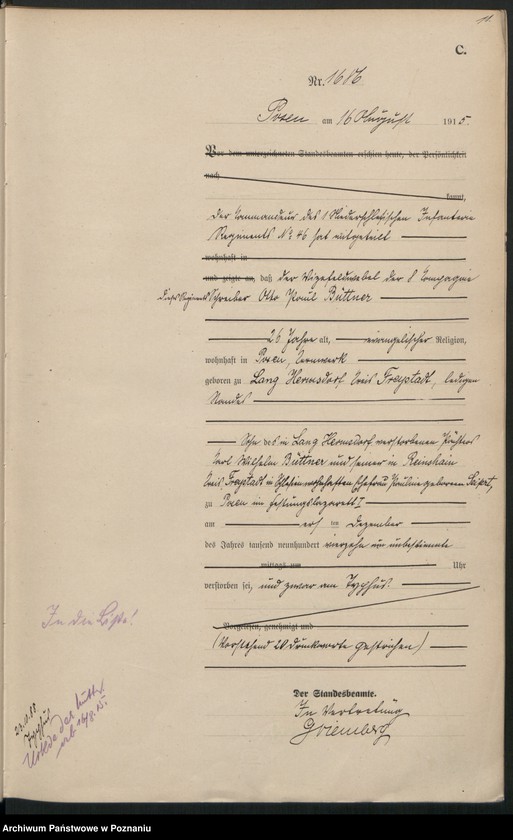 11.
C.
Nr. 1686
Posen am 16 August 1915.
Vor dem unterzeichneten Standesbeamten erschien heute, der Persönlichkeit
nach
kannt,
der Kommandeur des 1 Niederschlesischen Infanterie
Regiments No 46 hat mitgeteilt
wohnhaft in
und zeigte an, daß der Vizefeldwebel der 8 Compagnie
dieses Regiments Schreiber Otto Paul Büttner
26 Jahre alt, evangelischer Religion,
wohnhaft in Posen,
geboren zu Lang Hermsdorf Kreis Freystadt, ledigen
Standes
Sohn des in Lang Hermsdorf verstorbenen Pächters
Karl Wilhelm Büttner und seiner in Reinshain
Kreis Freystadt in Schlesien wohnhaften Ehefrau Pauline geborenen
zu Posen im Festungslazarett I
am ersten Dezember
des Jahres tausend neunhundert vierzehn um unbestimmte
mittags um Uhr
verstorben sei, und zwar am Typhus.
Vorgelesen, genehmigt und
(Vorstehend 20 Druckworte gestrichen)
Der Standesbeamte.
In Vertretung
In die Liste!
Typhus
Archiwum Państwowe w Poznaniu